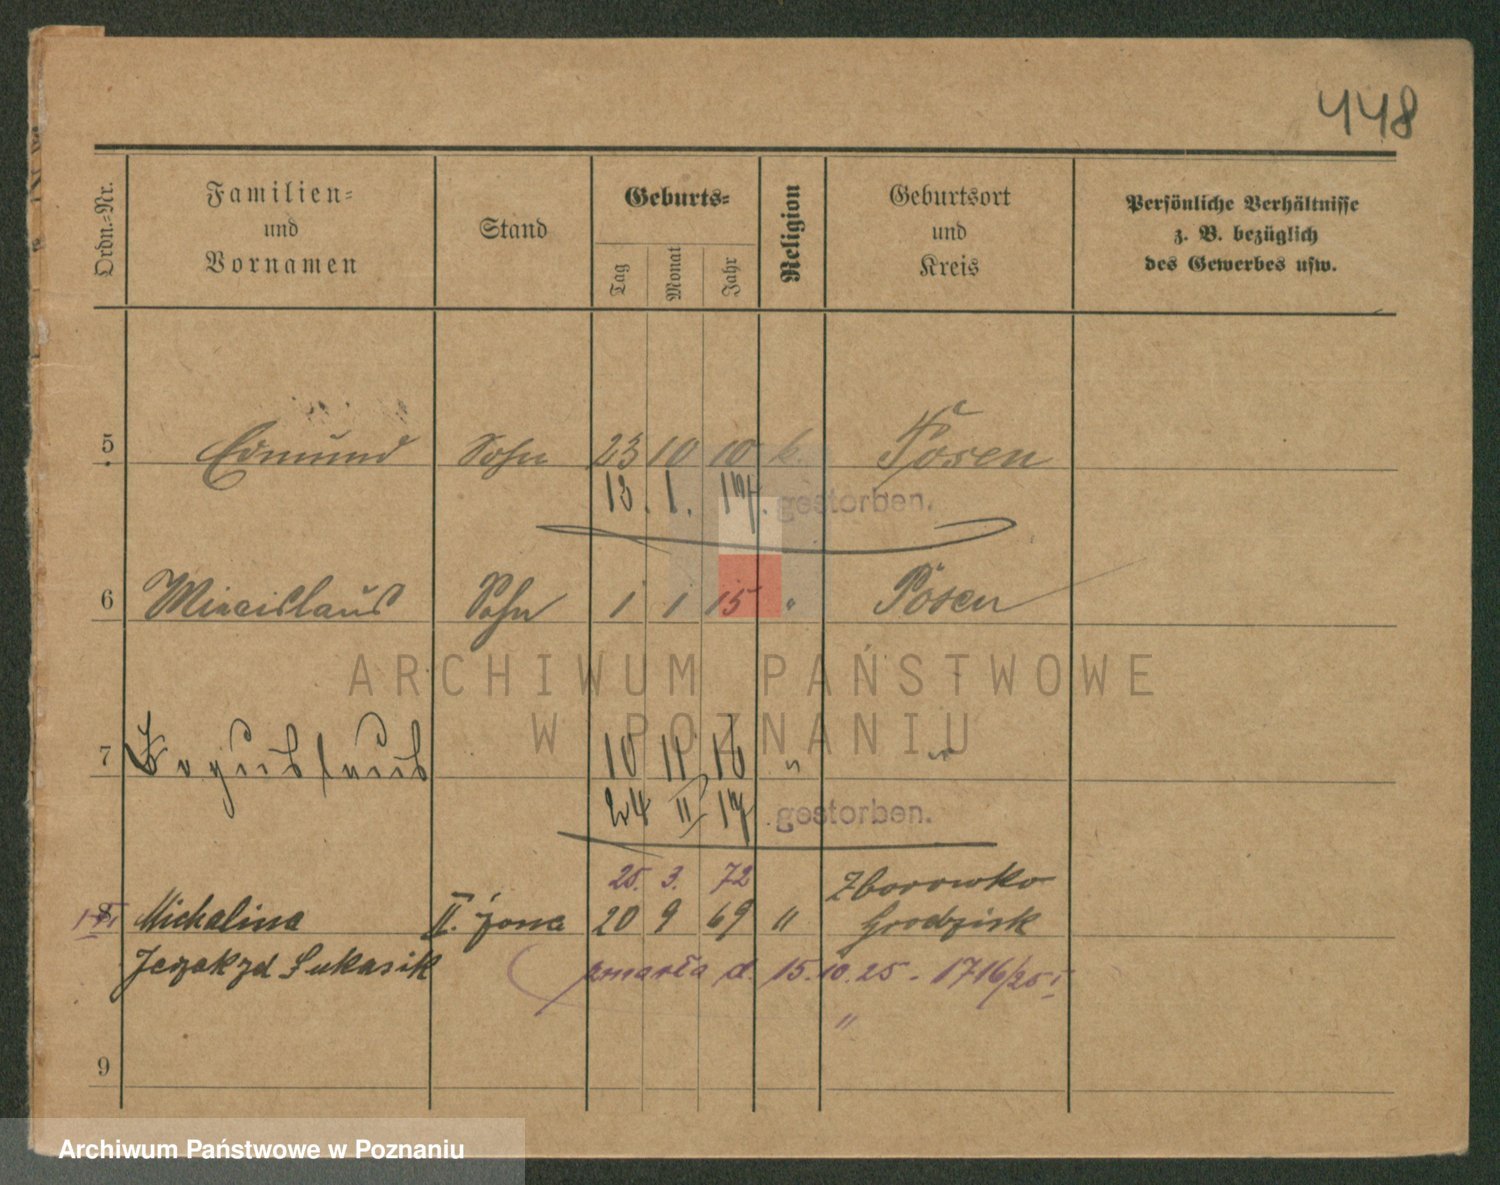 448
Ordn.-Nr.
Familien-
und
Vornamen
Stand
Geburts-
Tag
Monat
Jahr
Religion
Geburtsort
und
Kreis
Persönliche Verhältnisse
z. B. bezüglich
des Gewerbes usw.
5 Edmund Sohn 23 10 10 k. Posen
13. 1. 14. gestorben.
6 Miecislaus Sohn 1 1 15 " Posen
ARCHIWUM PAŃSTWOWE
W POZNANIU
7 Boguslaus 10 11 16 " "
24 II 17 gestorben.
25. 3. 72 Zborowko
8 Michalina II. żona 20 9 69 " Grodzisk
Sukasik zmarła d. 15.10.25 - 1716/25 I
"
9
Archiwum Państwowe w Poznaniu